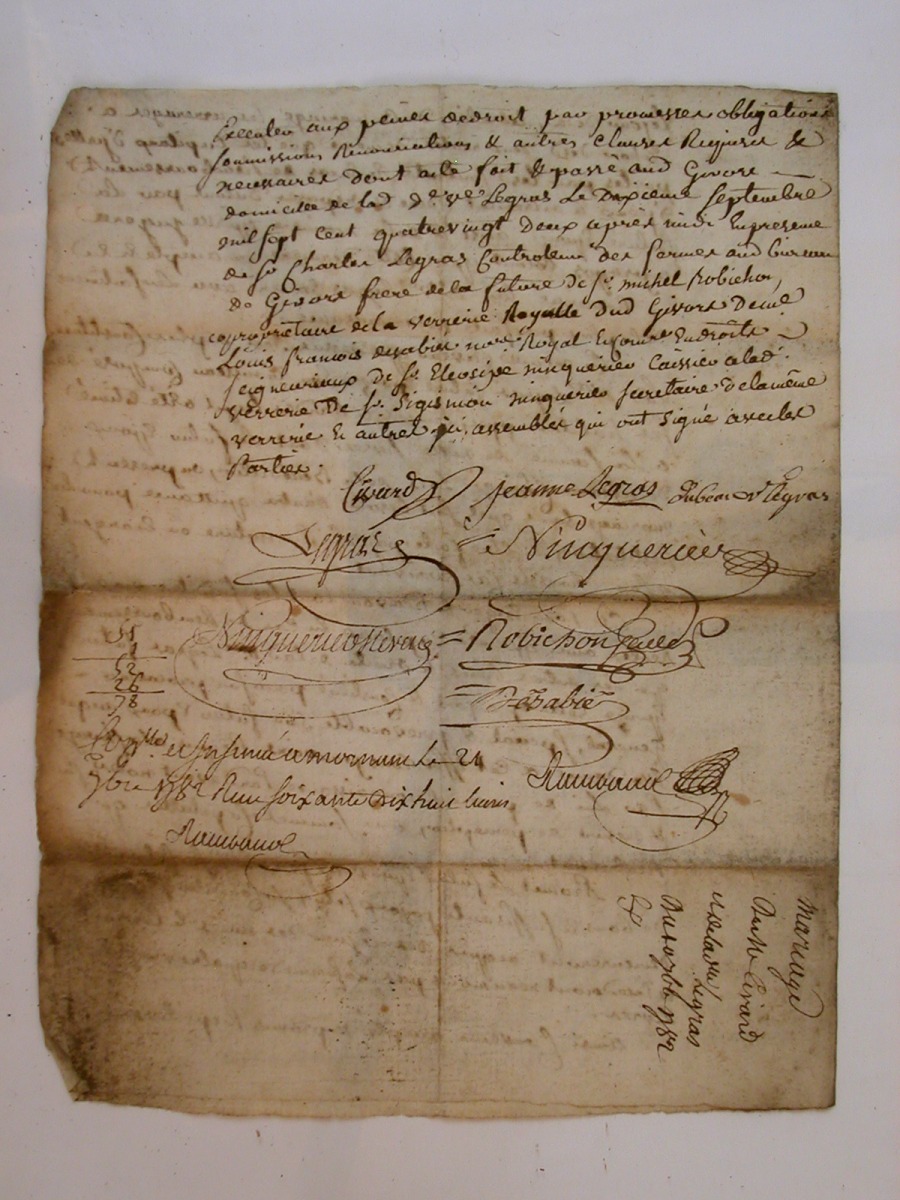 Executer aux peines de droit par promesses obligations
soumissions Renonciations & autres Clauses Requises &
necessaires dont acte fait & passé aud Givors
domicile de lad De ve Legras Le Dixieme Septembre
mil sept cent quatrevingt deux après midi En presence
de Sr Charles Legras Controleur des fermes aud bureau
de Givors frere de la future de Sr michel Robichon,
copropriétaire de la verrerie Royalle dud Givors De me
Louis francois desabie nore Royal En droits
seigneuriaux De Sr Eleosipe ninquerier Caissier a lad.
verrerie De Sr Sigismon ninquerier secretaire de la même
verrerie & autres assemblés qui ont signé avec les
Parties.
Civard Jeanne Legras ve Legras
Legras Ninquerier
Ninquerier Robichon
51
1
52
26
78
Desabie
a mornant Le 21
7bre 1782 Reçu soixante dix huit livres
Rambaud
Rambaud
Mariage
Civard
Legras
Du 10 7bre 1782